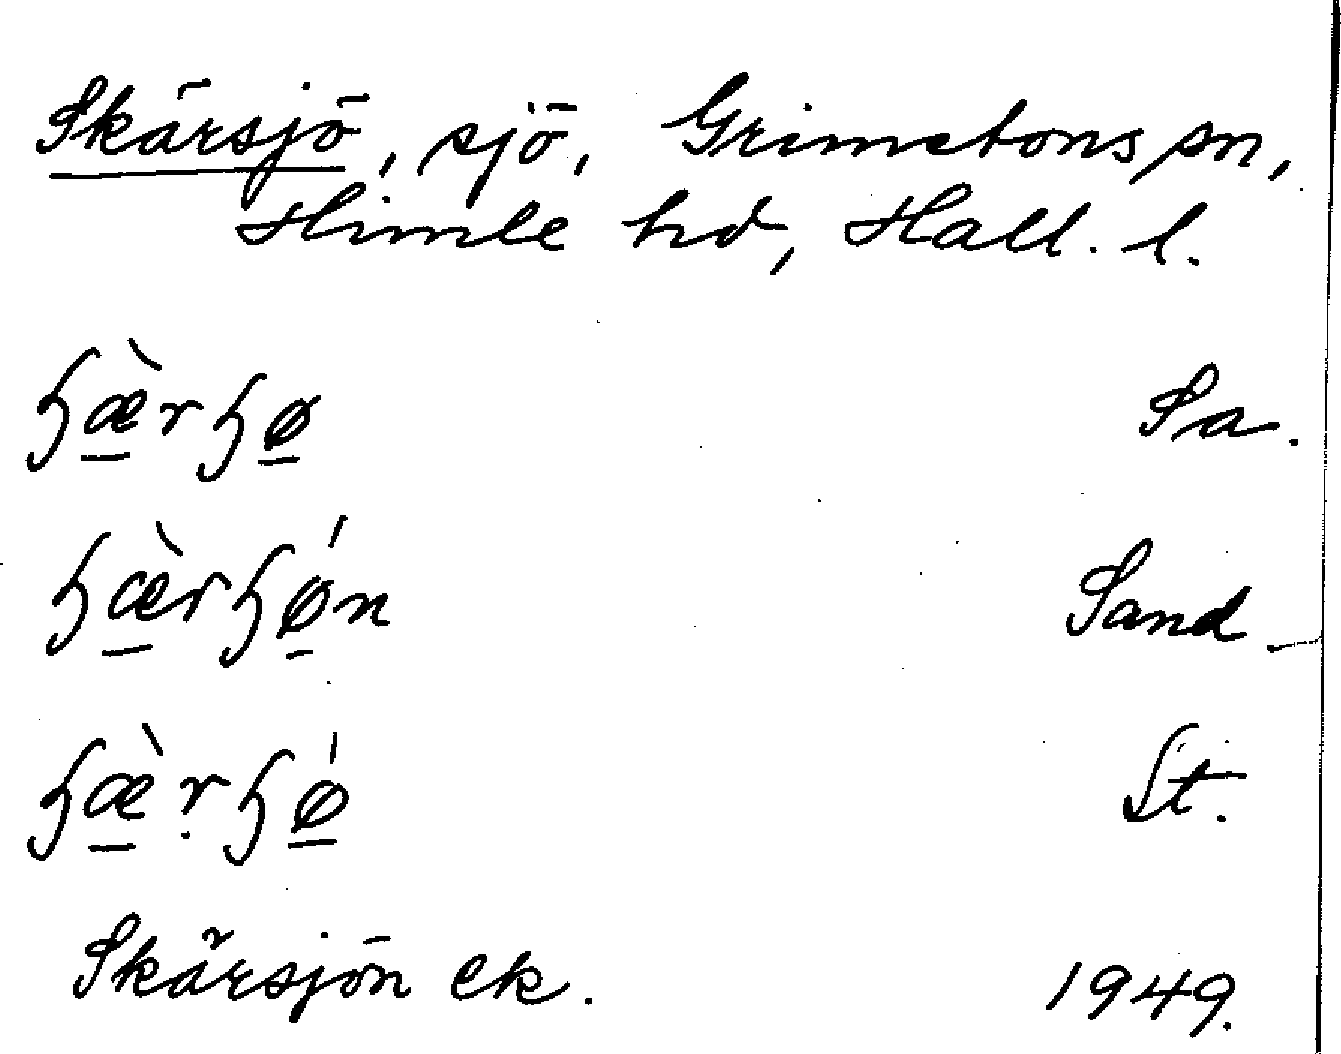 Skärsjö, sjö, Grimetons sn,
Himle hd, Hall. l.
ɧæ̀rɧø Sa.
ɧæ̀rɧǿn Sand
ɧæ̀ṛɧǿ St.
Skärsjön ek. 1949.